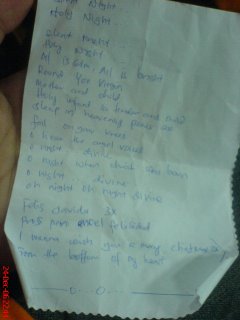 Silent Night...
Holy Night...
Silent Night...
Holy Night...
All is calm, All is bright
Round Yon Virgin
Mother and child
Holy infant so tender and mild
Sleep in heavenly peace
fall on your knees
O hear the angel voices
O night divine
O night when christ was born
O night divine
oh night oh night divine
Feliz navidad 3x
felicidad
I wanna wish you a merry christmas
from the bottom of my heart